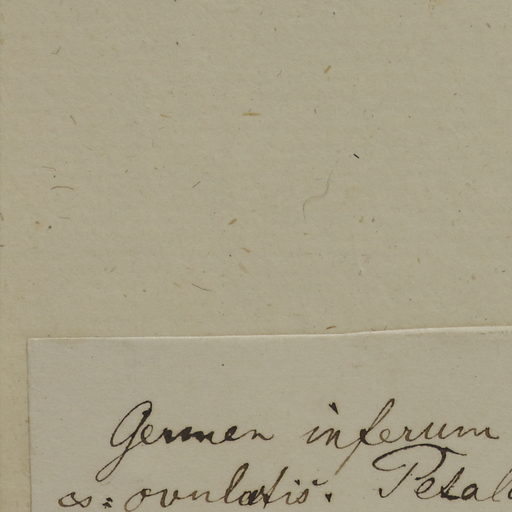 Germen inferum
∞: ovulatis. Petal